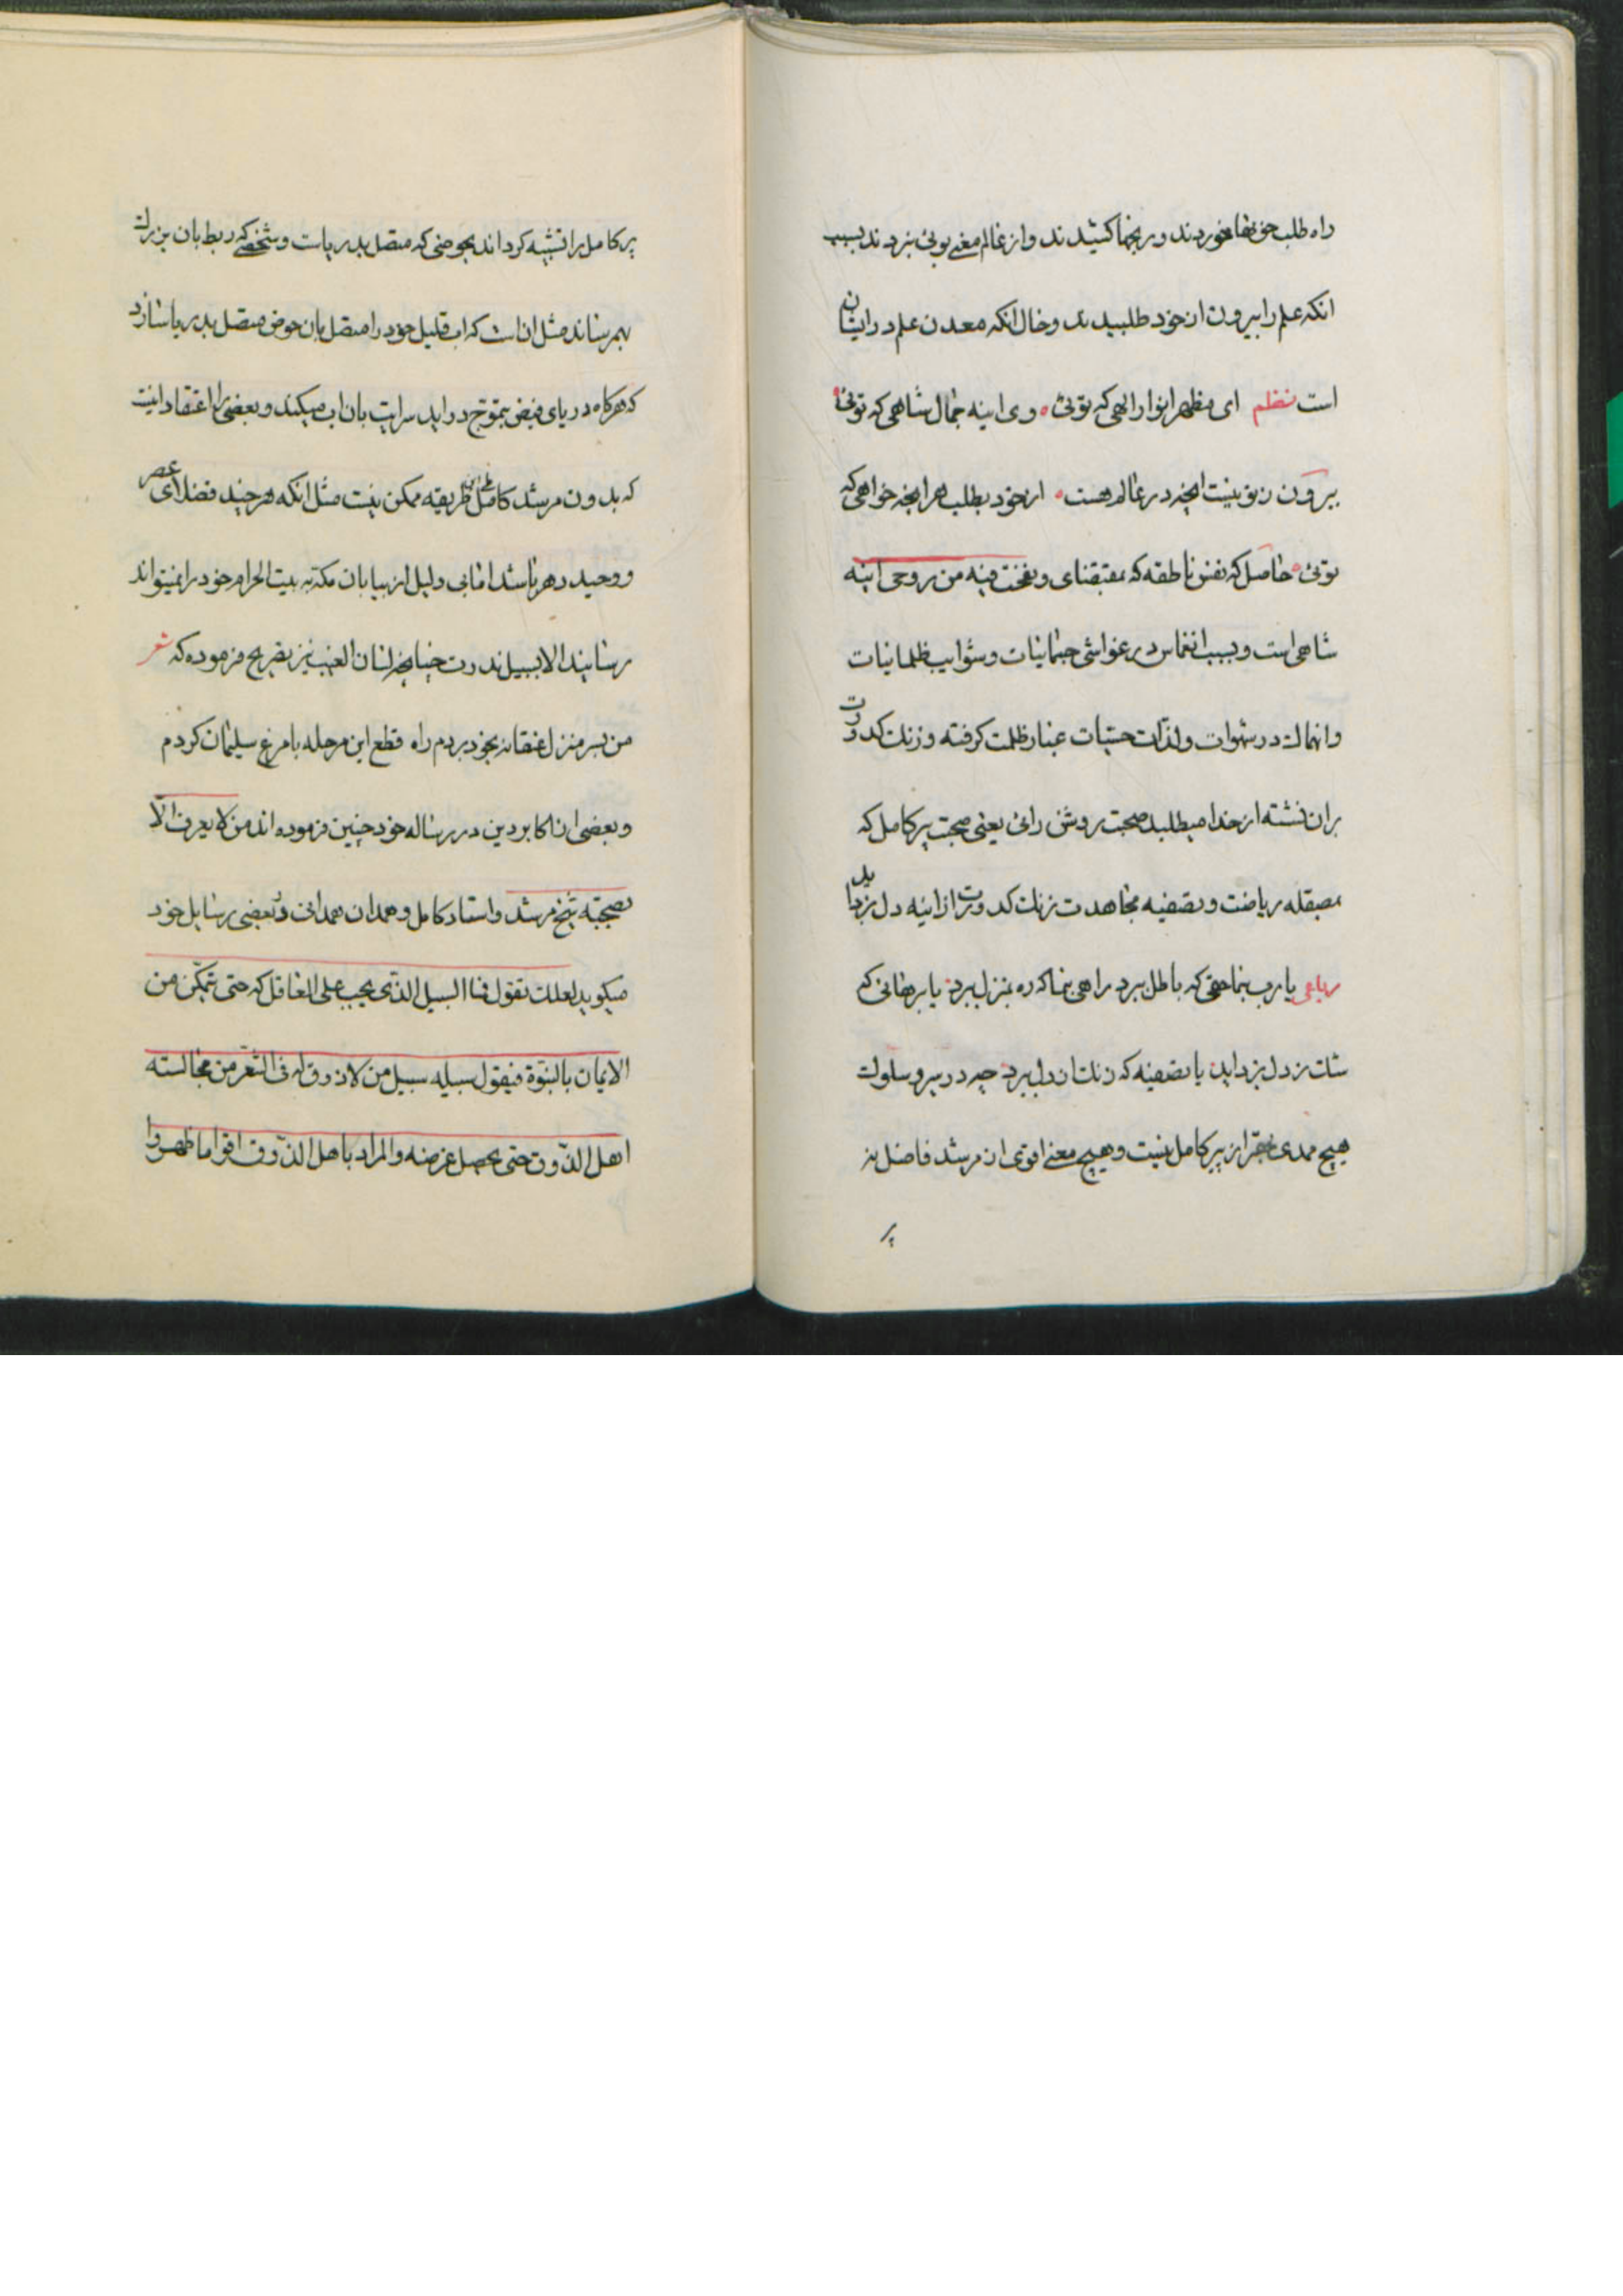 راه طلب حق خوردند و رنجها کشیدند و از عالم معنی بوئی نبردند بسبب
انکه علم را بیرون از خود طلبیدند و حال انکه معدن علم در ایشان
است نظم ای مظهر انوار الهی که توئی وی اینه جمال شاهی که توئی
بیرون ز تو نیست انچه در عالم هست از خود بطلب هر انچه خواهی که
توئی حاصل که نفس ناطقه که بمقتضای و نفخت فیه من روحی اینه
شاهی است و بسبب انغماس در غواشی جسمانیات و شوایب ظلمانیات
و انهماک در شهوات و لذات حسیات غبار ظلمت کرفته و زنک کدورت
بران نشسته از خدا میطلبد صحبت روشن رائی یعنی صحبت پیر کامل که
بمصقله ریاضت و تصفیه مجاهدت زنک کدورت از اینه دل بزداید
رباعی یا رب بنما حقی که باطل ببرد راهی بنما که ره بمنزل ببرد یا برهانی که
شک ز دل بزداید یا تصفیه که زنک از دل ببرد چه در سیر و سلوک
هیچ ممدی از پیر کامل نیست و هیچ معنی اقوی از مرشد فاضل نه
پیر
پیر کامل را تشبیه کرده اند بحوضی که متصل بدریاست و شخصی که ربط بان بزرک
بهمرساند مثل ان است که اب قلیل خود را متصل بان حوض متصل بدریا سازد
که هرکاه دریای فیض بتموج دراید سرایت بان اب میکند و بعضی را اعتقاد اینست
که بدون مرشد کامل طی این طریقه ممکن نیست مثل انکه هرچند فضلای عصر
و وحید دهر باشد اما بی دلیل از بیابان مکه به بیت الحرام خود را نمیتواند
رسانید الا بسبیل ندرت چنانچه لسان الغیب نیز تصریح فرموده که شعر
من بسر منزل عنقا نه بخود بردم راه قطع این مرحله با مرغ سلیمان کردم
و بعضی از اکابر دین در رساله خود چنین فرموده اند من لا یعرف الا
بصحبته شیخ مرشد و استاد کامل و همدان همدانی در بعضی رسایل خود
میکوید لعلک تقول فما السبیل الذی یجب علی العاقل که حتی یتمکن من
الایمان بالنبوة فیقول سبیله سبیل من لا ذوق له فی الشعر من مجالسته
اهل الذوق حتی یحصل غرضه و المراد باهل الذوق اقواما ظهروا